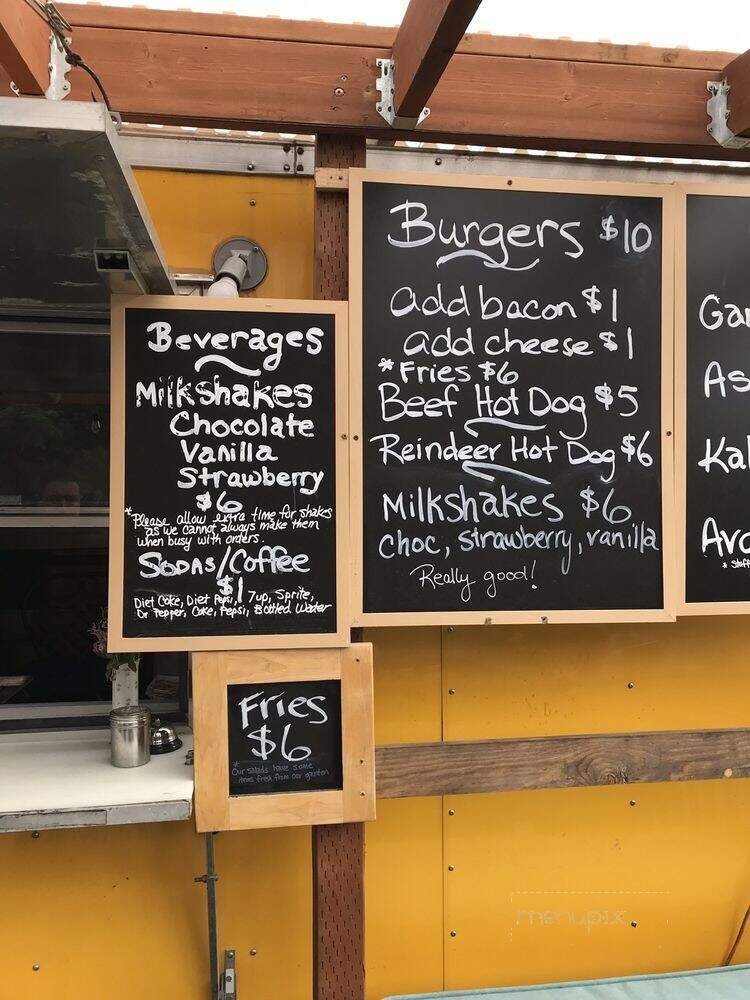 Beverages
Milkshakes
Chocolate
Vanilla
Strawberry
$6
*Please allow extra time for shakes
as we cannot always make them
when busy with orders.
Sodas/Coffee
$1
Diet Coke, Diet Pepsi, 7up, Sprite,
Dr Pepper, Coke, Pepsi, Bottled Water
Fries
$6
*
Our salads have some
items fresh from our garden
Burgers $10
add bacon $1
add cheese $1
*Fries $6
Beef Hot Dog $5
Reindeer Hot Dog $6
Milkshakes $6
choc, strawberry, vanilla
Really good!
Ga
As
Kal
Avo
menupix